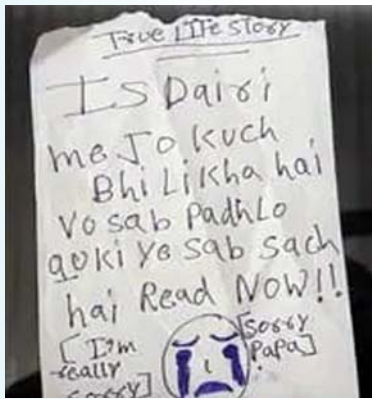 True Life Story
Is Dairi
me Jo kuch
Bhi Likha hai
Vo sab Padh Lo
quki ye sab sach
hai Read NOW!!
[I'm [sorry
really Papa]
sorry]